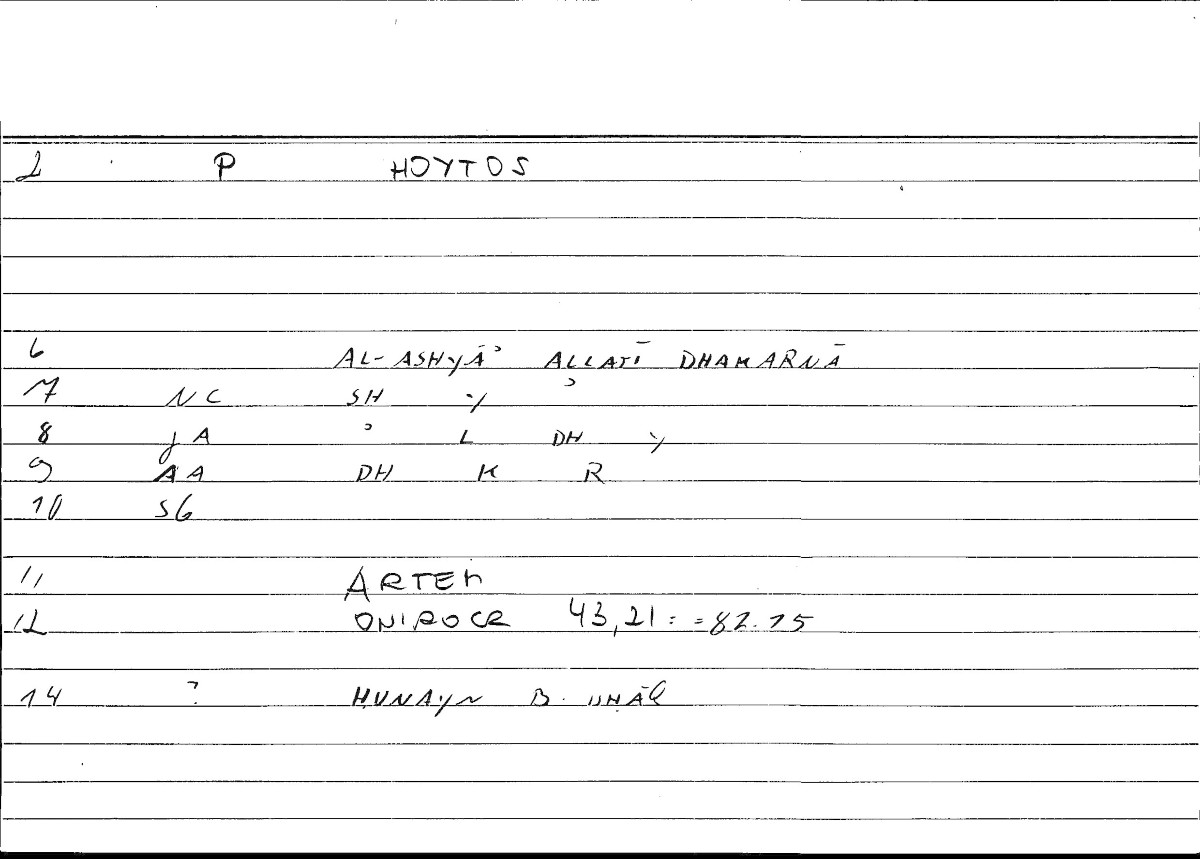 2 P HOYTOS
6 AL-ASHYĀʾ ALLATĪ DHAKARNĀ
7 NC SH Y ʾ
8 JA ʾ L DH Y
9 AA DH K R
10 SG
11 ARTEM
12 ONIROCR 43,21 : =82.15
14 ? ḤUNAYN B.